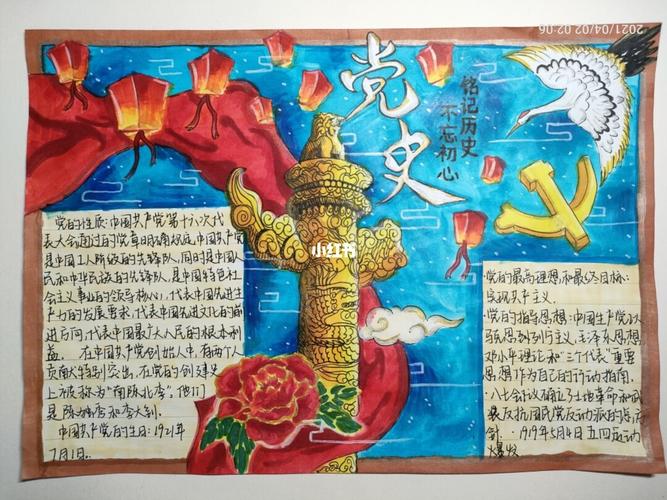 2021/04/02 02:06
党史
铭记历史
不忘初心
小红书
党的性质:中国共产党第十六次代
表大会通过的党章明确规定,中国共产党
是中国工人阶级的先锋队,同时是中国人
民和中华民族的先锋队,是中国特色社
会主义事业的领导核心,代表中国先进生
产力的发展要求,代表中国先进文化的前
进方向,代表中国最广大人民的根本利
益. 在中国共产党创始人中,有两个人
贡献特别突出,在党的创建史
上被称为"南陈北李",他们
是陈独秀和李大钊.
中国共产党的生日:1921年
7月1日.
党的最高理想和最终目标:
实现共产主义.
·党的指导思想:中国共产党以马
克思列宁主义,毛泽东思想,
邓小平理论和"三个代表"重要
思想作为自己的行动指南.
·八七会议确立了土地革命和武
装反抗国民党反动派的总方
针. ·1919年5月4日五四运动
爆发